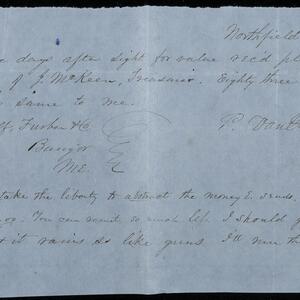 Northfield
days after sight for value rec'd pl
of J. McKeen, Treasurer. Eighty three
same to me.
Furber & Co
Bangor
Me.
take the liberty to abstract the money & send
You can remit so much less. I should g
it rains so like guns. I'll run th